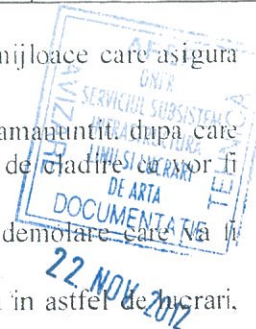 mijloace care asigura
amanuntit, dupa care
de cladire ce vor fi
demolare care va fi
in astfel de lucrari,
AVIZARE
TEHNICA
SERVICIUL SUBSISTEM
INFRASTRUCTURA
LINII SI LUCRARI
DE ARTA
DOCUMENTATIE
22. NOV. 2012